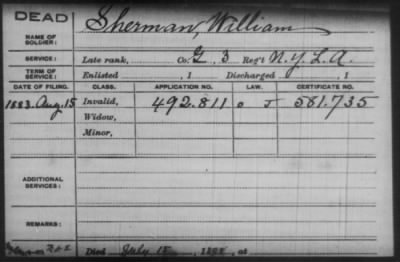 DEAD
Sherman, William
NAME OF SOLDIER:
SERVICE: Late rank, Co. G, 3 Reg't N.Y.L.A.
TERM OF SERVICE: Enlisted , 1 Discharged , 1
DATE OF FILING. CLASS. APPLICATION NO. LAW. CERTIFICATE NO.
1883. Aug. 15 Invalid, 492.811 J 581.735
Widow,
Minor,
ADDITIONAL SERVICES:
REMARKS:
Died July 15, , at